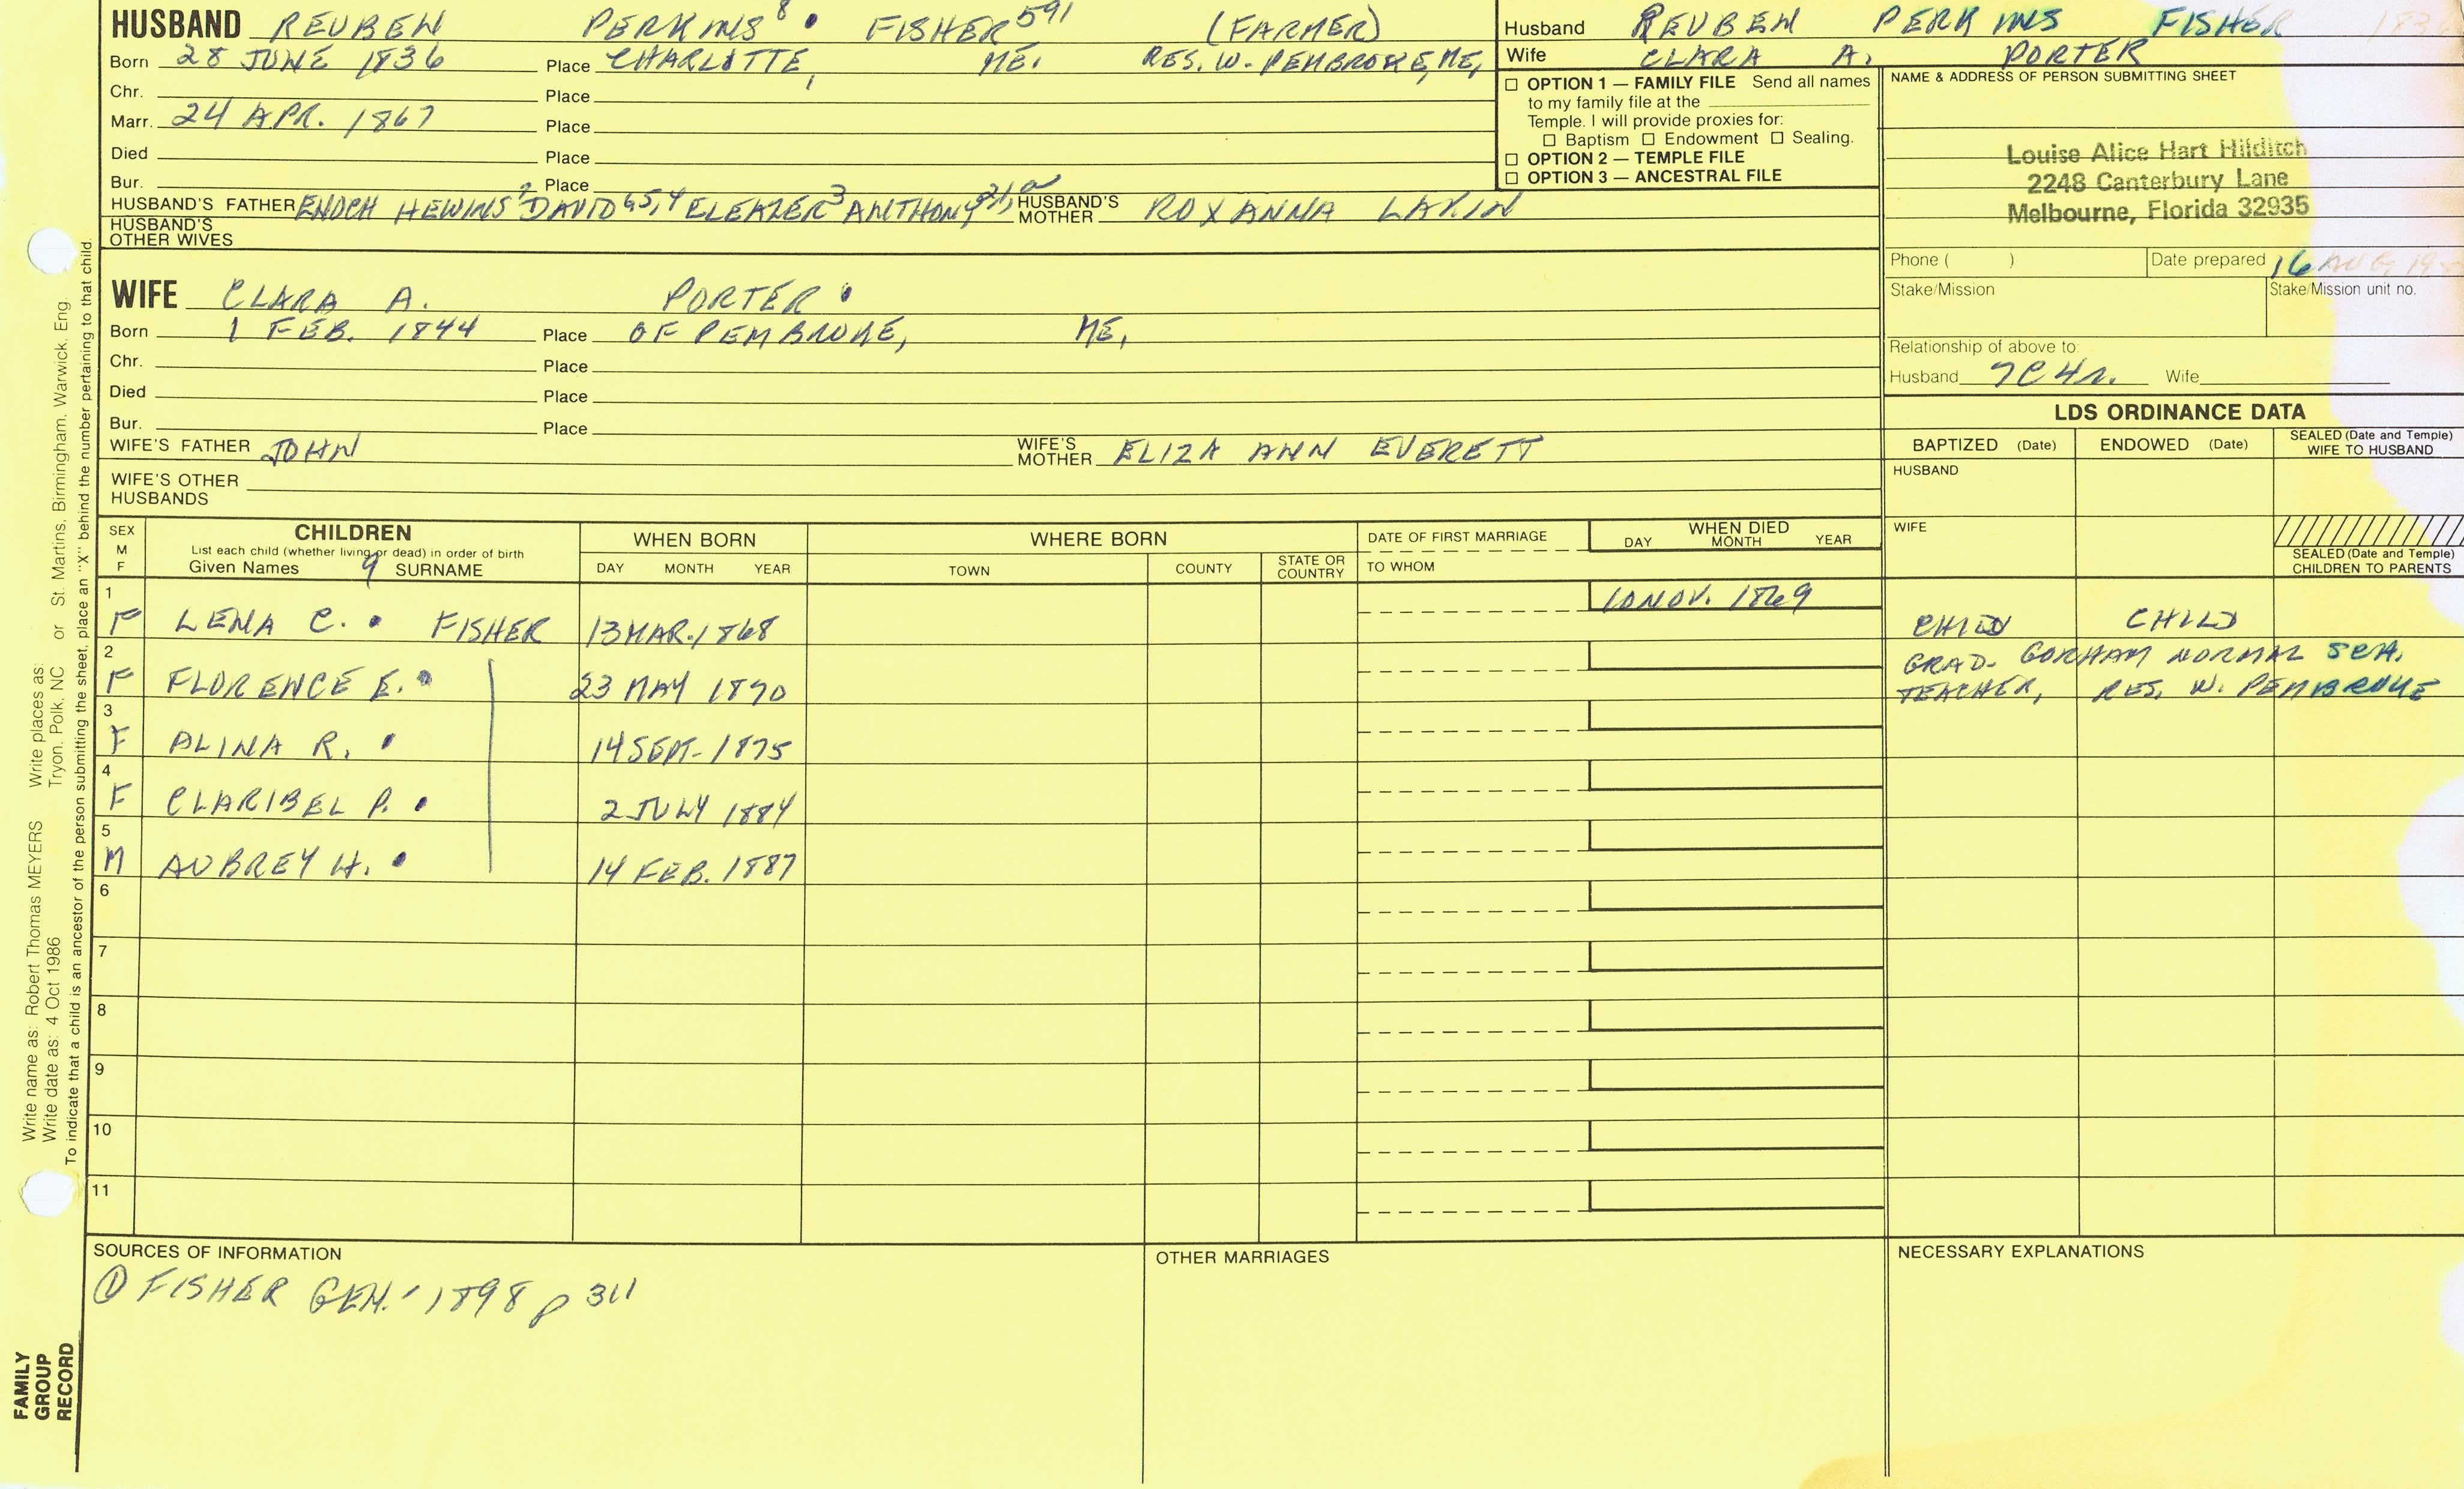 HUSBAND REUBEN PERKINS 8 • FISHER 591 (FARMER)
Born 28 JUNE 1836 Place CHARLOTTE, ME. RES. W. PEMBROKE, ME,
Chr. Place
Marr. 24 APR. 1867 Place
Died Place
Bur. Place
HUSBAND'S FATHER ENOCH HEWINS 7 DAVID 6,5,4 ELEAZER 3 ANTHONY 2,1,a HUSBAND'S MOTHER ROXANNA LAKIN
HUSBAND'S OTHER WIVES
WIFE CLARA A. PORTER •
Born 1 FEB. 1844 Place OF PEMBROKE, ME,
Chr. Place
Died Place
Bur. Place
WIFE'S FATHER JOHN WIFE'S MOTHER ELIZA ANN EVERETT
WIFE'S OTHER HUSBANDS
Husband REUBEN PERKINS FISHER 1836
Wife CLARA A. PORTER
☐ OPTION 1 — FAMILY FILE Send all names
to my family file at the
Temple. I will provide proxies for:
☐ Baptism ☐ Endowment ☐ Sealing.
☐ OPTION 2 — TEMPLE FILE
☐ OPTION 3 — ANCESTRAL FILE
NAME & ADDRESS OF PERSON SUBMITTING SHEET
Louise Alice Hart Hilditch
2248 Canterbury Lane
Melbourne, Florida 32935
Phone ( ) Date prepared 16 AUG 19
Stake/Mission Stake/Mission unit no.
Relationship of above to:
Husband 7C4r. Wife
LDS ORDINANCE DATA
BAPTIZED (Date) ENDOWED (Date) SEALED (Date and Temple) WIFE TO HUSBAND
HUSBAND
WIFE
SEALED (Date and Temple) CHILDREN TO PARENTS
SEX M F CHILDREN WHEN BORN WHERE BORN DATE OF FIRST MARRIAGE WHEN DIED
List each child (whether living or dead) in order of birth
Given Names 9 SURNAME DAY MONTH YEAR TOWN COUNTY STATE OR COUNTRY TO WHOM DAY MONTH YEAR
1 F LENA C. • FISHER 13 MAR. 1868 10 NOV. 1869 CHILD CHILD
2 F FLORENCE E. • 23 MAY 1870 GRAD. GORHAM NORMAL SCH.
TEACHER, RES. W. PEMBROKE
3 F ALINA R. • 14 SEPT. 1875
4 F CLARIBEL P. • 2 JULY 1884
5 M AUBREY H. • 14 FEB. 1887
6
7
8
9
10
11
SOURCES OF INFORMATION OTHER MARRIAGES NECESSARY EXPLANATIONS
① FISHER GEN. 1898 p 311
Write name as: Robert Thomas MEYERS Write places as: Tryon, Polk, NC or St. Martins, Birmingham, Warwick, Eng
Write date as: 4 Oct 1986
To indicate that a child is an ancestor of the person submitting the sheet, place an "X" behind the number pertaining to that child.
FAMILY
GROUP
RECORD